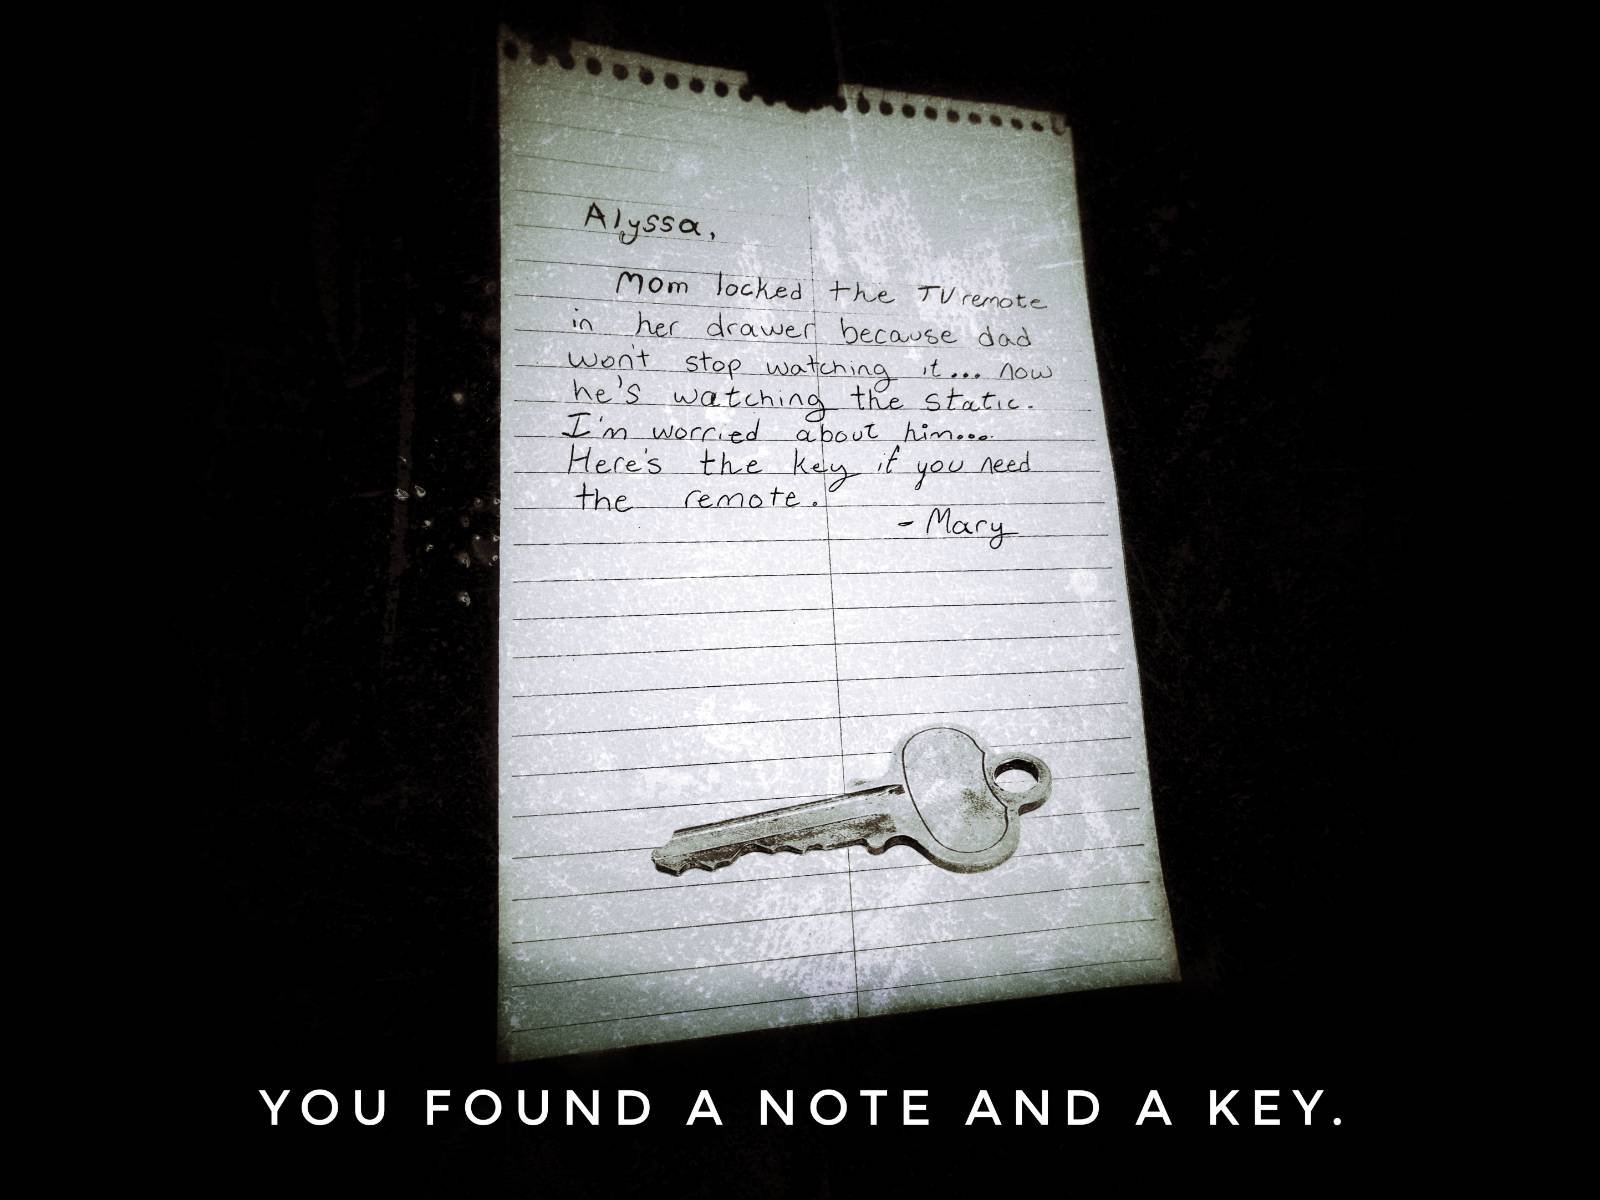 Alyssa,
Mom locked the TV remote
in her drawer because dad
won't stop watching it... now
he's watching the static.
I'm worried about him...
Here's the key if you need
the remote.
- Mary
YOU FOUND A NOTE AND A KEY.